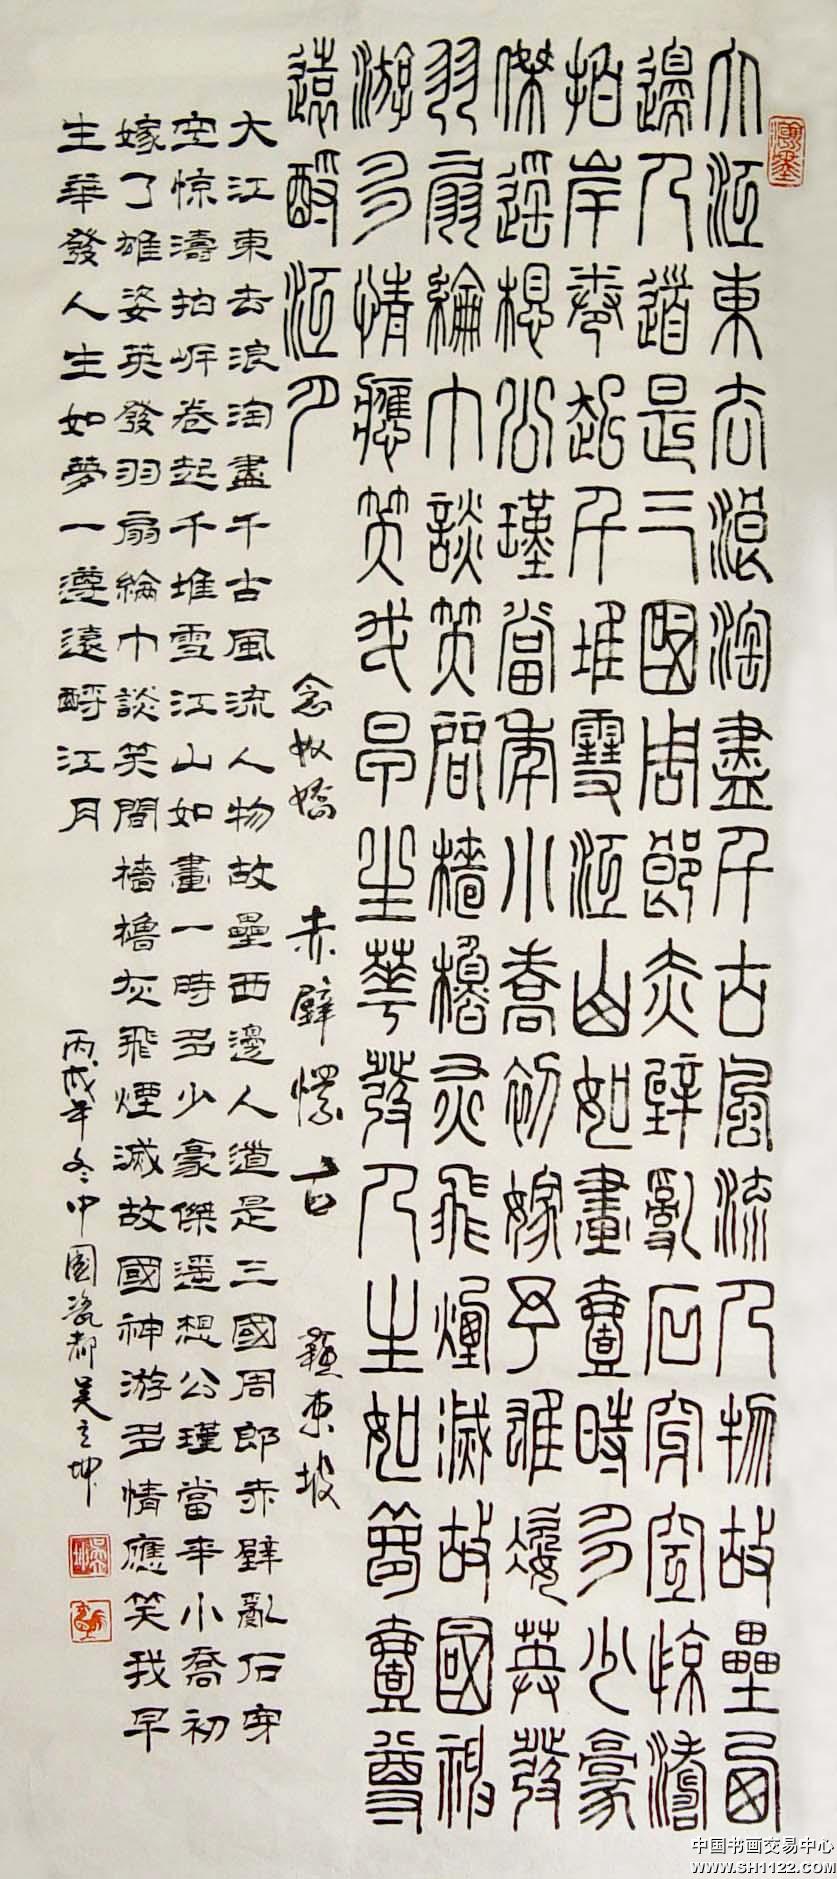 大江東去浪淘盡千古風流人物故壘西
邊人道是三國周郎赤壁亂石穿空惊濤
拍岸卷起千堆雪江山如畫壹時多少豪
傑遥想公瑾當年小喬初嫁了雄姿英發
羽扇綸巾談笑間檣櫓灰飛煙滅故國神
游多情應笑我早生華發人生如夢壹尊
遠酹江月
念奴嬌 赤壁懷古 蘇東坡
大江東去浪淘盡千古風流人物故壘西邊人道是三國周郎赤壁亂石穿
空惊濤拍岸卷起千堆雪江山如畫一時多少豪傑遥想公瑾當年小喬初
嫁了雄姿英發羽扇綸巾談笑間檣櫓灰飛煙滅故國神游多情應笑我早
生華發人生如夢一遵遠酹江月
丙戌年冬中國瓷都吴立坤
中国书画交易中心
WWW.SH1122.COM